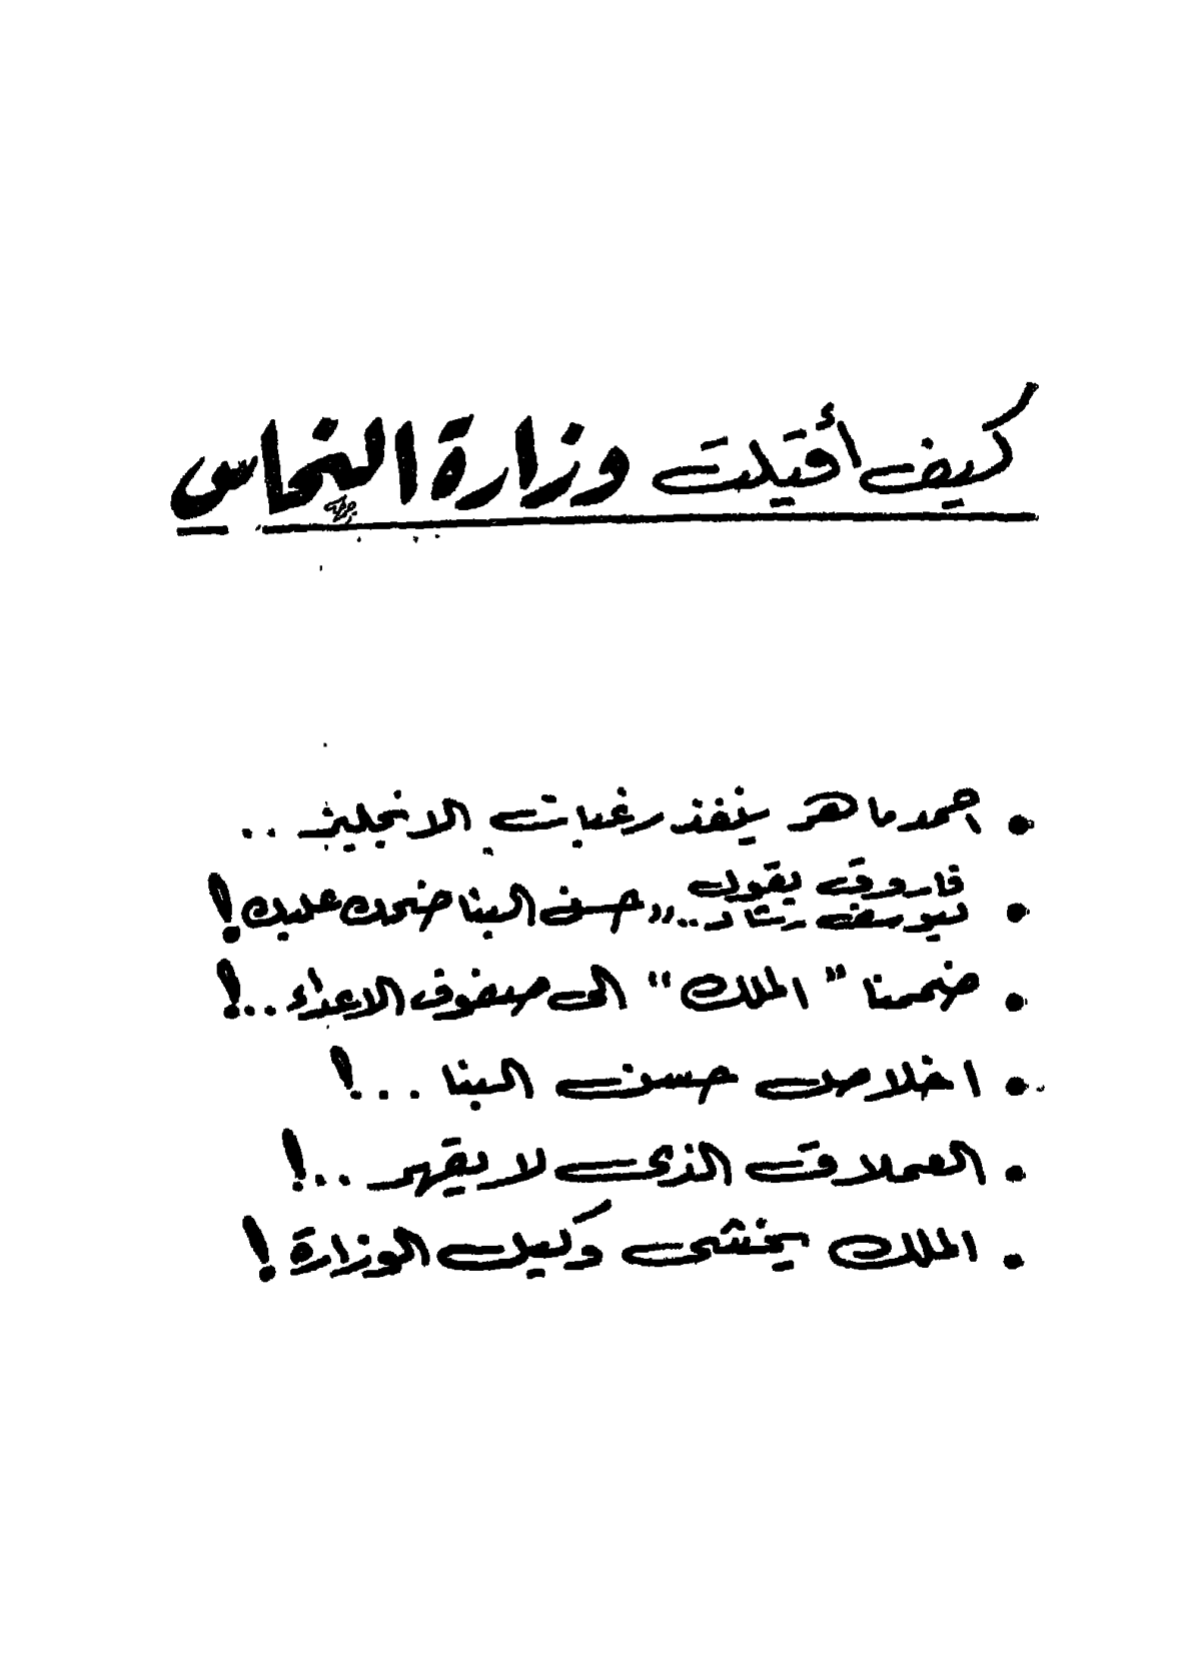 كيف أقيلت وزارة النحاس
• احمد ماهر ينفذ رغبات الانجليز ..
• فاروق يقول
ليوسف رشاد .. „ حسن البنا ضحك عليك !
• ضممنا " الملك " الى صفوف الاعداء .. !
• اخلاص حسن البنا ... !
• العملاق الذى لا يقهر .. !
• الملك يخشى وكيل الوزارة !